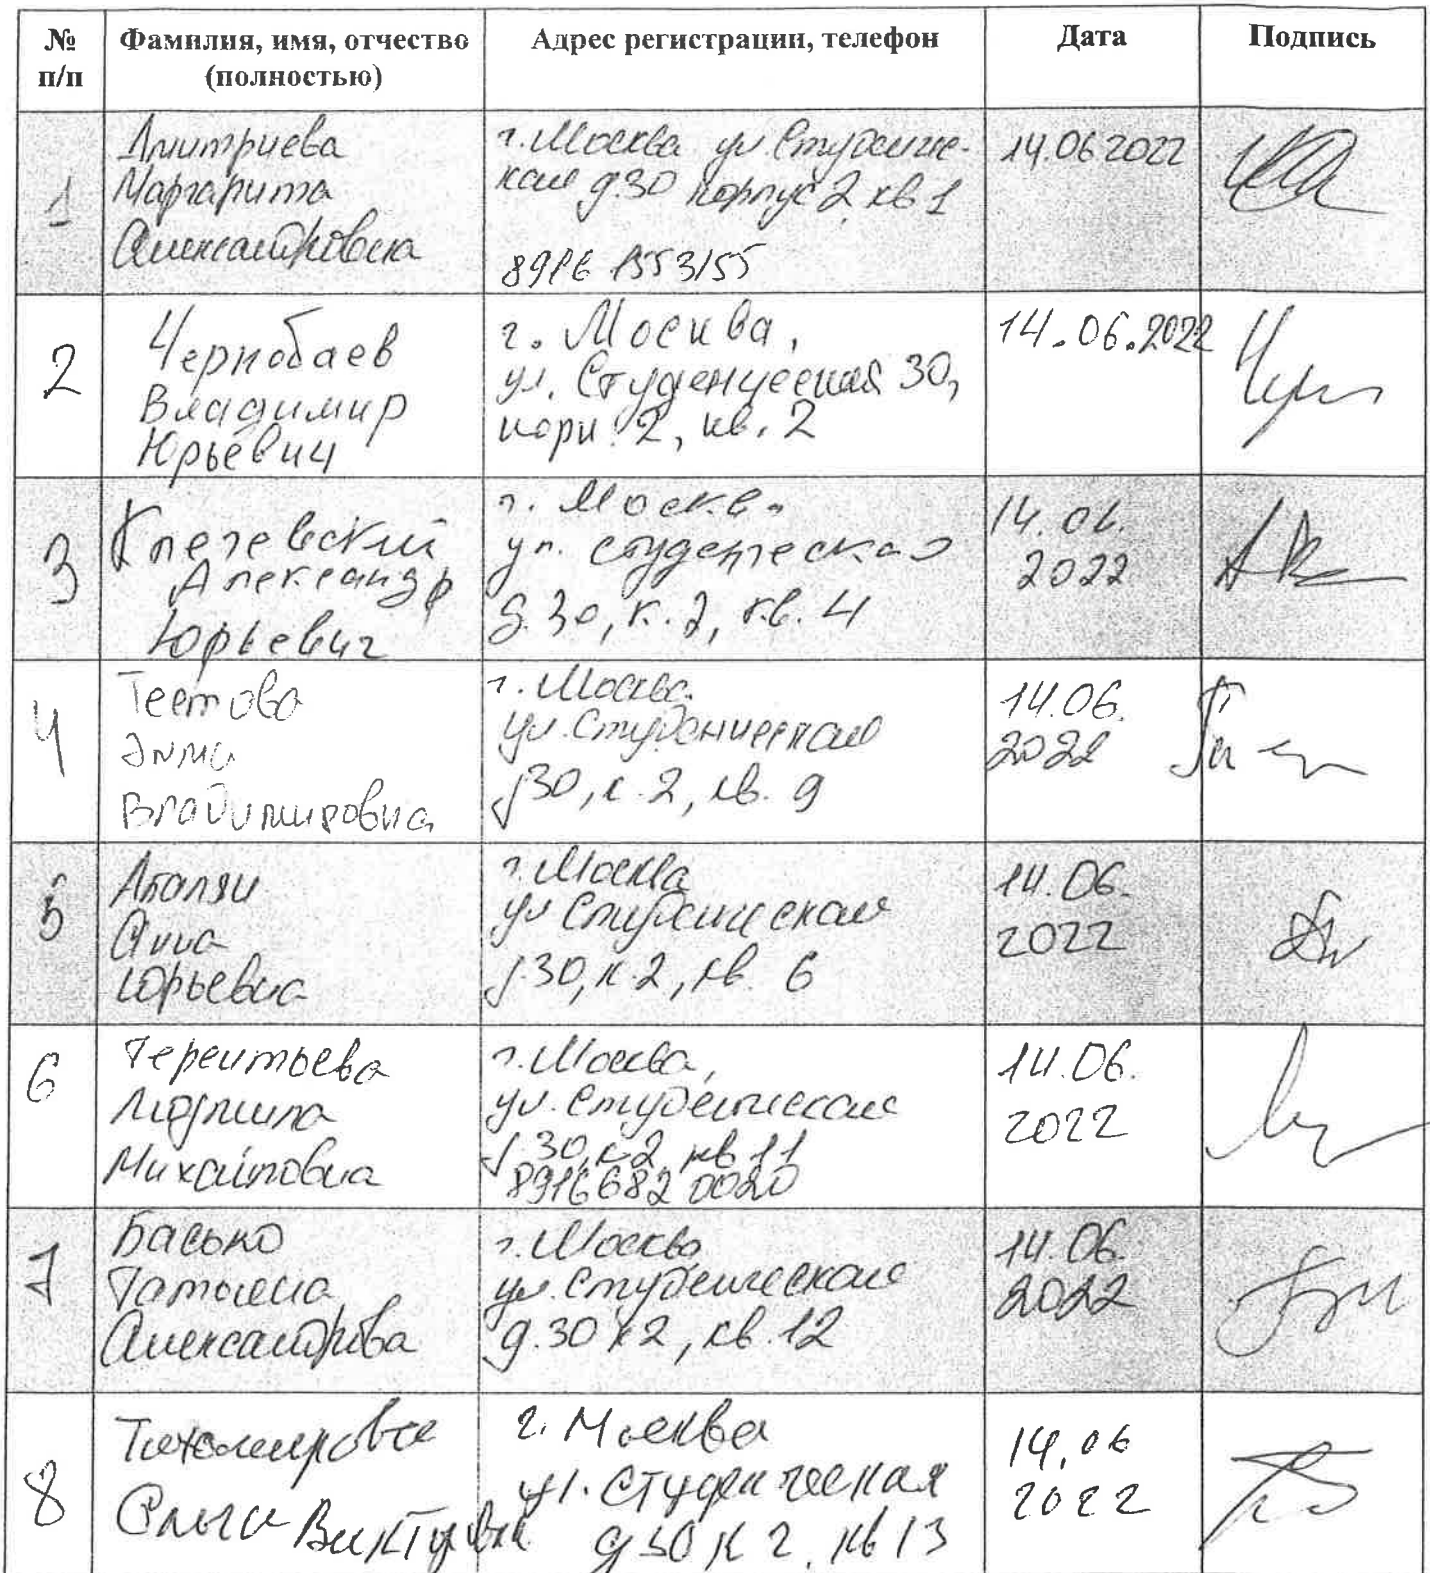 № п/п
Фамилия, имя, отчество (полностью)
Адрес регистрации, телефон
Дата
Подпись
1
Дмитриева
Маргарита
Александровна
г. Москва ул Студенче-
ская д30 корпус 2 кв 1
8916
14.06 2022
2
Чернобаев
Владимир
Юрьевич
г. Москва,
ул. Студенческая 30,
корп. 2, кв. 2
14.06.2022
3
Александр
Юрьевич
г. Москва
ул. Студенческая
д. 30, к. 2, кв. 4
14.06.
2022
4
Владимировна
г. Москва
ул Студенческая
д30, к. 2, кв. 9
14.06.
2022
5
Анна
Юрьевна
г. Москва
ул Студенческая
д.30, к.2, кв. 6
14.06.
2022
6
Терентьева
Людмила
Михайловна
г. Москва,
ул. Студенческая
д.30, к2, кв 11
8916 682 0020
14.06.
2022
7
Басько
Татьяна
г. Москва
ул. Студенческая
д.30 к2, кв.12
14.06.
2022
8
Тихомирова
Ольга Викторовна
г. Москва
ул. Студенческая
д 30 к 2, кв 13
14.06
2022